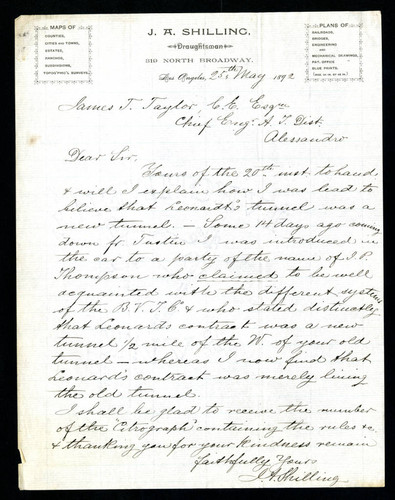 MAPS OF
COUNTIES,
CITIES AND TOWNS,
ESTATES,
RANCHOS,
SUBDIVISIONS,
TOPOG'PHIC'L SURVEYS.
J. A. SHILLING,
Draughtsman
319 NORTH BROADWAY.
PLANS OF
RAILROADS,
BRIDGES,
ENGINEERING
AND
MECHANICAL DRAWINGS,
PAT. OFFICE
BLUE PRINTS.
Los Angeles, 25th May 1892
James T. Taylor, C.E. Esqre
Chief Engr. A. I. Dist.
Alessandro
Dear Sir.
Yours of the 20th inst. to hand
& will I explain how I was lead to
believe that Leonardt's tunnel was a
new tunnel. — Some 14 days ago coming
down fr. Tustin I was introduced in
the car to a party of the name of J. P.
Thompson who claimed to be well
acquainted with the different systems
of the B. V. I. C. & who stated distinctly
that Leonards contract was a new
tunnel 1/2 mile of the W. of your old
tunnel — whereas I now find that
Leonard's contract was merely lining
the old tunnel.
I shall be glad to receive the number
of the "Citrograph" containing the rules &c
& thanking you for your kindness remain
faithfully Yours
J. A. Shilling